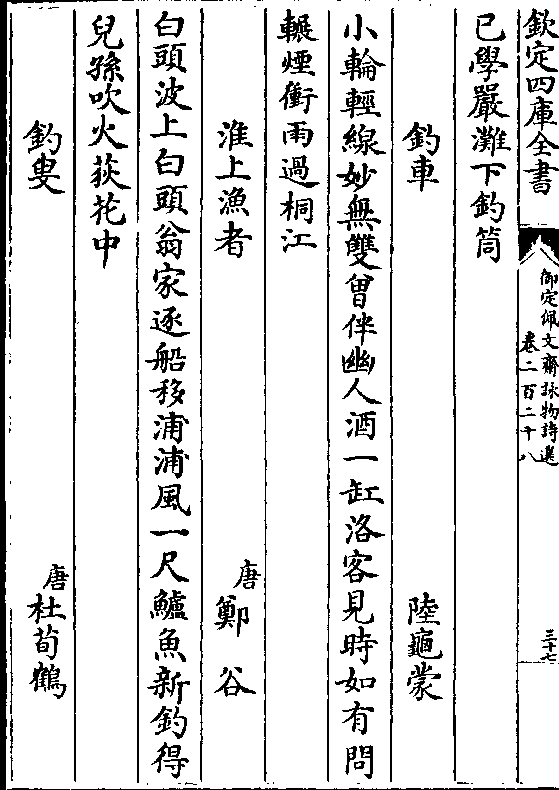 欽定四庫全書
御定佩文齋詠物詩選
卷二百二十八
三十七
已學嚴灘下釣筒
釣車
陸龜蒙
小輪輕線妙無雙曾伴幽人酒一缸洛客見時如有問
輾煙衝雨過桐江
淮上漁者
唐鄭谷
白頭波上白頭翁家逐船移浦浦風一尺鱸魚新釣得
兒孫吹火荻花中
釣叟
唐杜荀鶴